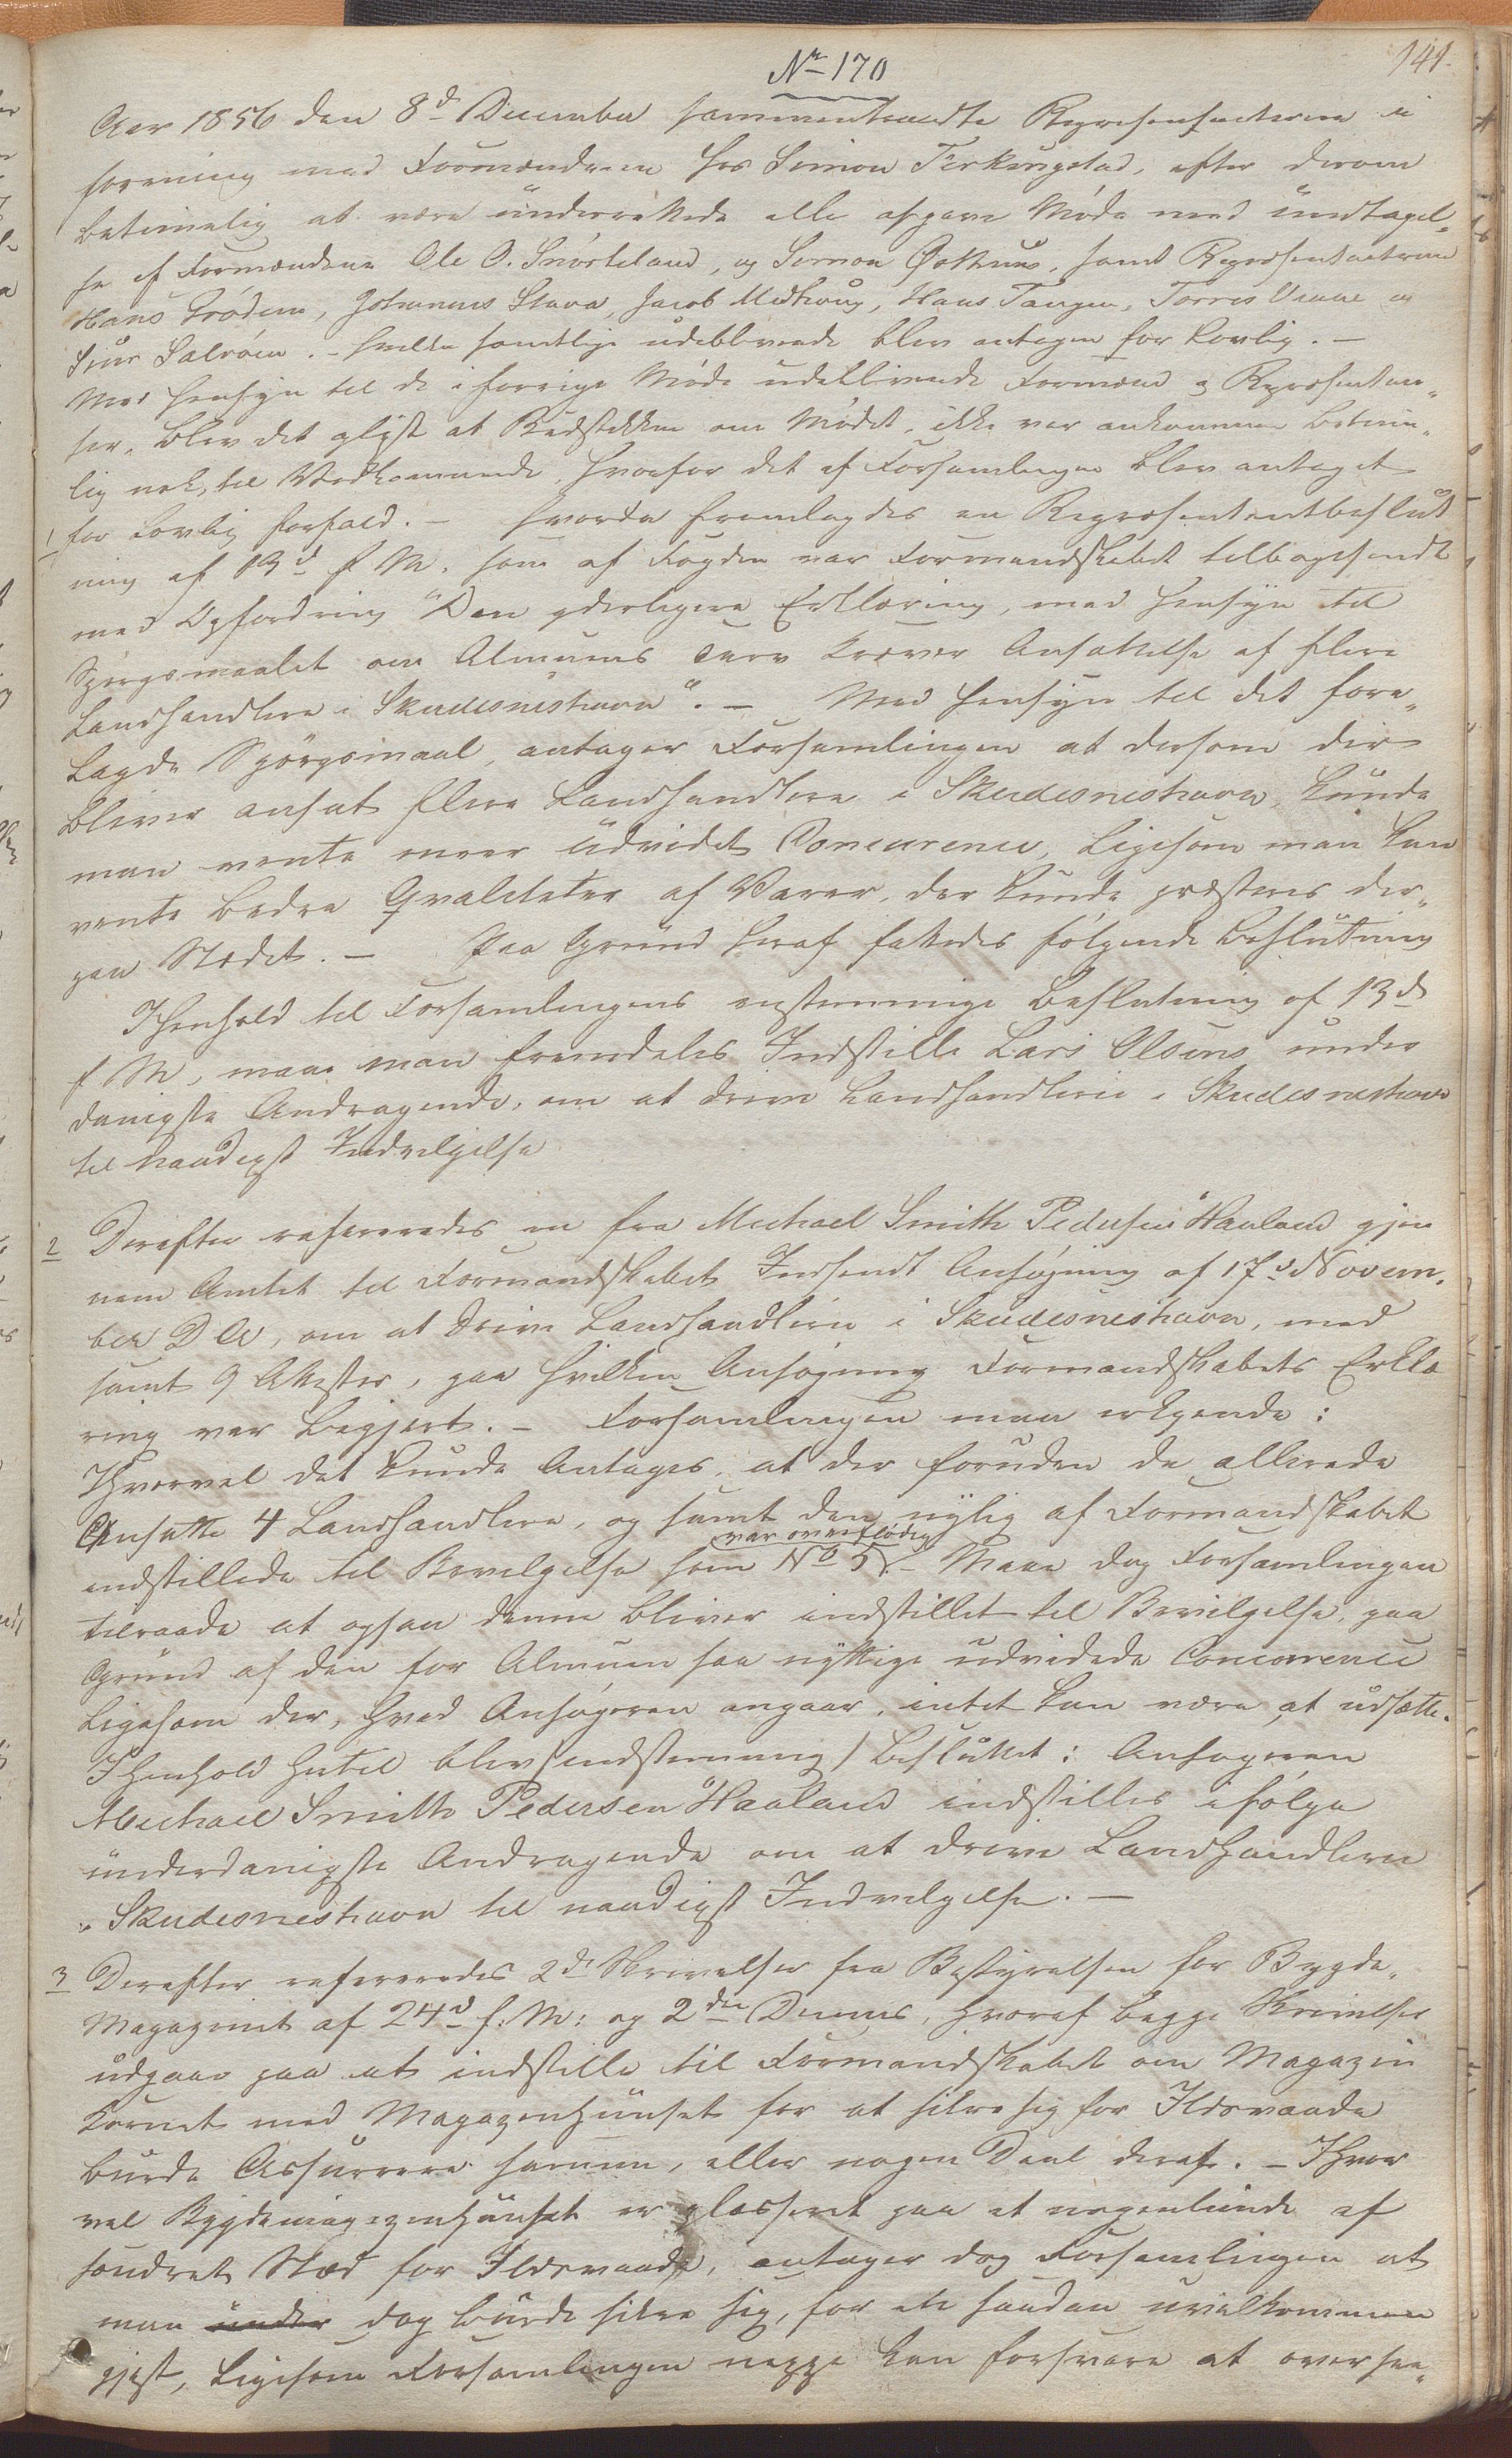 141.
No 170
Aar 1856 den 8d December sammentraadte Repræsentanterne i
forening med Formændene hos Simon Ferkingstad, efter derom
betimelig at være underrettede alle afgave Møde med undtagel-
se af Formændene Ole O. Snørteland, og Simon Østhuus, samt Repræsentanterne
Hans Trødem, Johannes Stava, Jacob Medhoug, Hans Tangen, Torres Vaage og
Siur Salvøen. - hvilke samtlige udeblevende blev antagen for Lovlig. -
Med Hensyn til de i forrige Møde udeblivende Formænd og Repræsentan-
ter, blev det oplyst at Budstikken om Mødet, ikke var ankommen betime-
lig nok, til Vedkommende, hvorfor det af Forsamlingen blev antaget
1 for Lovlig forfald. - Hvorda fremlagdes en Repræsentantbeslut
ning af 13d f M. som af Fogden var Formandskabet tilbagesendt
med Opfordring "Den yderligere Erklæring, med Hensyn til
Spørgsmaalet om Almuens Tarv kræver Ansættelse af flere
Landhandlere i Skudesneshavn". - Med Hensyn til det fore-
Lagde Spørgsmaal, antager Forsamlingen at dersom der
bliver ansat flere Landhandlere i Skudesneshavn, kunde
man vente meer udvidet Concurence, Ligesom man kan
vente bedre Qvaliteter af Varer, der kunde præsteres der-
paa Stedet. - Paa Grund heraf fattedes følgende Beslutning
I Henhold til Forsamlingens enstemmige Beslutning af 13d
f M, maa man fremdeles Indstille Lars Olsens under
danigste Andragende, om at drive Landhandlerie i Skudesneshavn
til naadigst Indvilgelse
2 Derefter refereredes en fra Michael Smith Pedersen Haaland gjen
nem Amtet til Formandskabet Indsendt Ansøgning af 17d Novem-
ber D A, om at drive Landhandleri i Skudesneshavn, med
samt 9 Attester, paa hvilken Ansøgning Formandskabets Erklæ
ring var begjert. - Forsamlingen maa erkjende:
Ihvorvel det kunde Antages, at der foruden de allerede
Ansatte 4 Landhandlere, og samt den nylig af Formandskabet
var overflødig
indstillede til Bevilgelse som No 5. - Maa dog Forsamlingen
tilraade at ogsaa denne bliver indstillet til Bevilgelse, paa
Grund af den for Almuen saa nyttige udvidede Concurence
Ligesom der, hvad Ansøgeren angaar, intet kan være at udsætte.
I Henhold hertil blev (endstemmig) besluttet: Ansøgeren
Michael Smith Pedersen Haaland indstilles ifølge
underdanigste Andragende om at drive Landhandlerie
i Skudesneshavn til naadigst Indvilgelse. -
3 Derefter refereredes 2de Skrivelser fra Bestyrelsen for Bygde-
Magazinet af 24d f. M: og 2den Dennes, hvoraf begge Skrivelser
udgaar paa at indstille til Formandskabet om Magazin
Kornet med Magazinhuuset for at sikre sig for Ildsvaade
burde Assurere sammen, eller nogen Deel deraf. - Ihvor
vel Bygdemagazinhuuset er placseret paa et nogenlunde af
sondret Sted for Ildsvaade, antager dog Forsamlingen at
man under dog burde sikre sig, for en saadan uvelkommen
gjest, Ligesom Forsamlingen neppe kan forsvare at oversee-